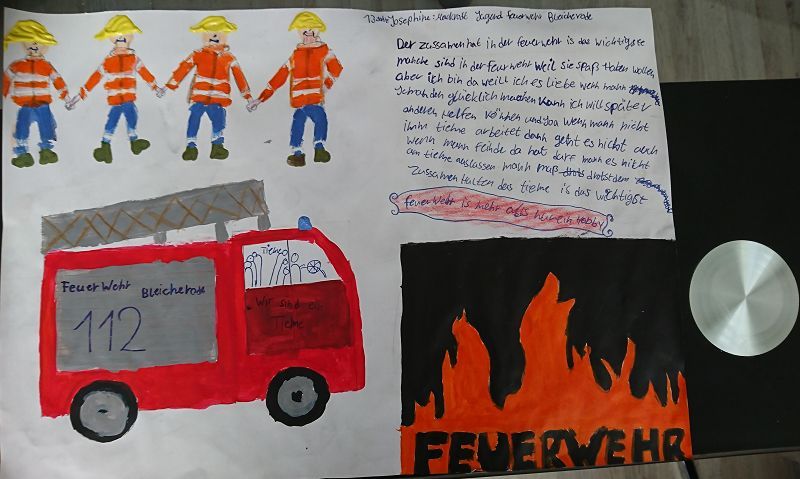 Josephine: Jugend feuerwehr Bleicherode
Der zussamenhat in der feuerwehr is das wichtigste
manche sind in der feurwehr weil sie spaß Haben wollen
aber ich bin da weill ich es liebe wenn mann
Jemanden glücklich machen kann ich will später
anderen Helfen können und wenn mann nicht
im tieme arbeitet dann geht es nicht auch
wenn mann feinde da hat darf mann es nicht
am tieme auslassen mann muß drotzdem
zusammen Halten das tieme is das wichtigst
feuerwehr is mehr als nur ein Hobby
Tieme
Feuerwehr Bleicherode
112
Wir sind ein
Tieme
FEUERWEHR